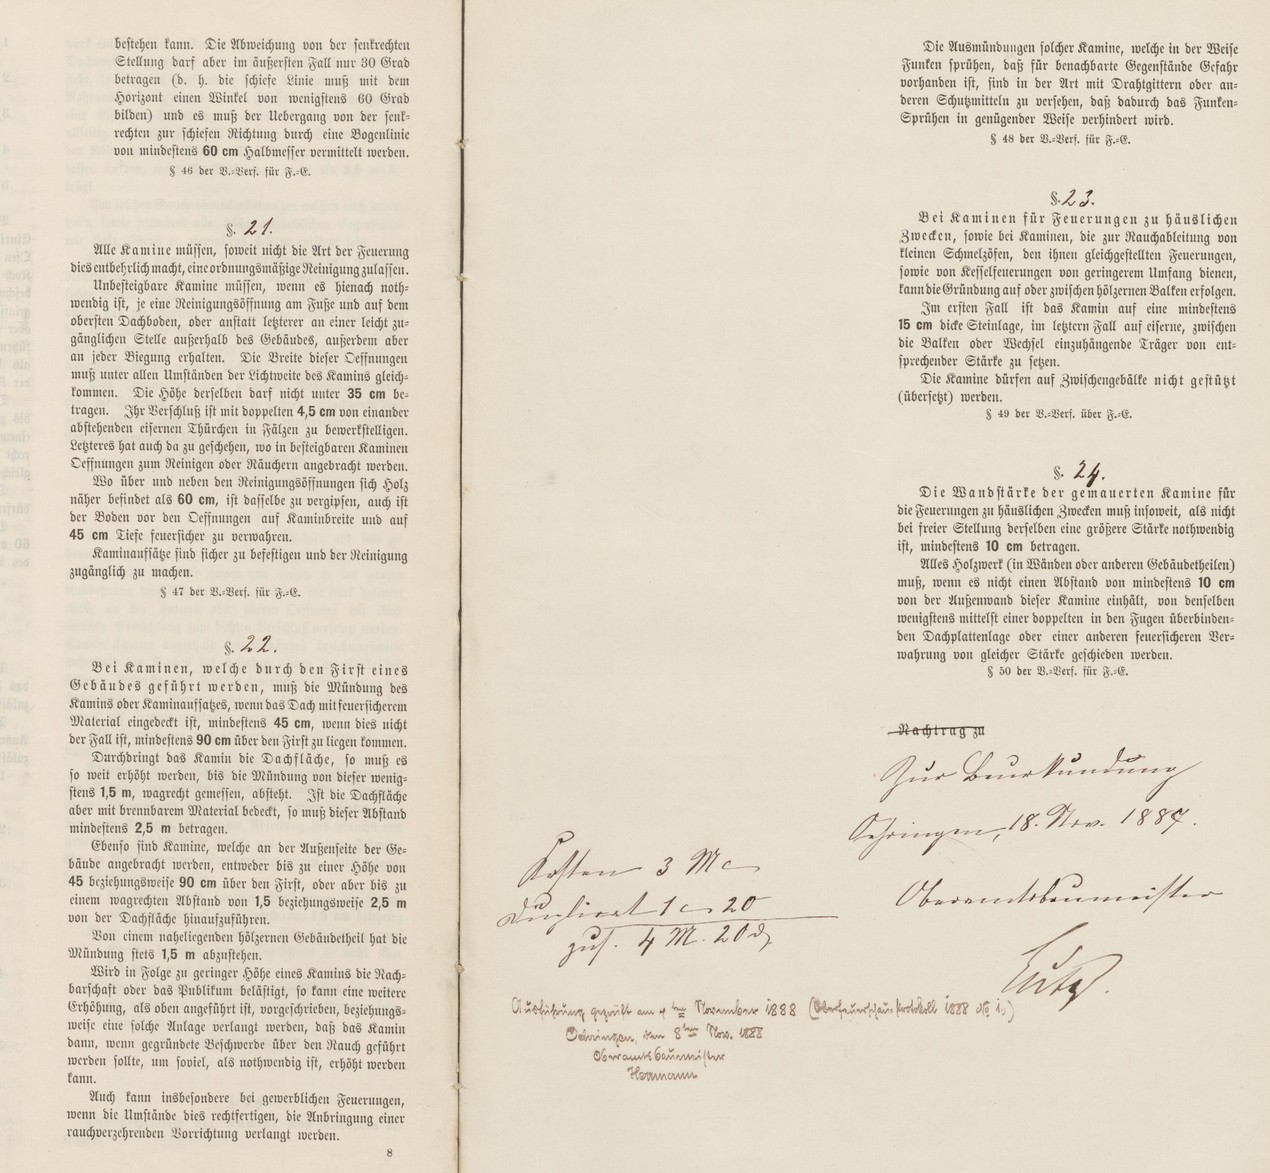 bestehen kann. Die Abweichung von der senkrechten
Stellung darf aber im äußersten Fall nur 30 Grad
betragen (d. h. die schiefe Linie muß mit dem
Horizont einen Winkel von wenigstens 60 Grad
bilden) und es muß der Uebergang von der senk-
rechten zur schiefen Richtung durch eine Bogenlinie
von mindestens 60 cm Halbmesser vermittelt werden.
§ 46 der V.-Verf. für F.-E.
§. 21.
Alle Kamine müssen, soweit nicht die Art der Feuerung
dies entbehrlich macht, eine ordnungsmäßige Reinigung zulassen.
Unbesteigbare Kamine müssen, wenn es hienach noth-
wendig ist, je eine Reinigungsöffnung am Fuße und auf dem
obersten Dachboden, oder anstatt letzterer an einer leicht zu-
gänglichen Stelle außerhalb des Gebäudes, außerdem aber
an jeder Biegung erhalten. Die Breite dieser Oeffnungen
muß unter allen Umständen der Lichtweite des Kamins gleich-
kommen. Die Höhe derselben darf nicht unter 35 cm be-
tragen. Ihr Verschluß ist mit doppelten 4,5 cm von einander
abstehenden eisernen Thürchen in Fälzen zu bewerkstelligen.
Letzteres hat auch da zu geschehen, wo in besteigbaren Kaminen
Oeffnungen zum Reinigen oder Räuchern angebracht werden.
Wo über und neben den Reinigungsöffnungen sich Holz
näher befindet als 60 cm, ist dasselbe zu vergipsen, auch ist
der Boden vor den Oeffnungen auf Kaminbreite und auf
45 cm Tiefe feuersicher zu verwahren.
Kaminaufsätze sind sicher zu befestigen und der Reinigung
zugänglich zu machen.
§ 47 der V.-Verf. für F.-E.
§. 22.
Bei Kaminen, welche durch den First eines
Gebäudes geführt werden, muß die Mündung des
Kamins oder Kaminaufsatzes, wenn das Dach mit feuersicherem
Material eingedeckt ist, mindestens 45 cm, wenn dies nicht
der Fall ist, mindestens 90 cm über den First zu liegen kommen.
Durchdringt das Kamin die Dachfläche, so muß es
so weit erhöht werden, bis die Mündung von dieser wenig-
stens 1,5 m, wagrecht gemessen, absteht. Ist die Dachfläche
aber mit brennbarem Material bedeckt, so muß dieser Abstand
mindestens 2,5 m betragen.
Ebenso sind Kamine, welche an der Außenseite der Ge-
bäude angebracht werden, entweder bis zu einer Höhe von
45 beziehungsweise 90 cm über den First, oder aber bis zu
einem wagrechten Abstand von 1,5 beziehungsweise 2,5 m
von der Dachfläche hinaufzuführen.
Von einem naheliegenden hölzernen Gebäudetheil hat die
Mündung stets 1,5 m abzustehen.
Wird in Folge zu geringer Höhe eines Kamins die Nach-
barschaft oder das Publikum belästigt, so kann eine weitere
Erhöhung, als oben angeführt ist, vorgeschrieben, beziehungs-
weise eine solche Anlage verlangt werden, daß das Kamin
dann, wenn gegründete Beschwerde über den Rauch geführt
werden sollte, um soviel, als nothwendig ist, erhöht werden
kann.
Auch kann insbesondere bei gewerblichen Feuerungen,
wenn die Umstände dies rechtfertigen, die Anbringung einer
rauchverzehrenden Vorrichtung verlangt werden.
8
Kosten 3 M
Duplicat 1 " 20
zus. 4 M. 20 ₰
Ausführung geprüft am 4ten November 1888 (Oberfeuerschau-Protokoll 1888 No 1.)
Oehringen, den 8ten Nov. 1888
Oberamtsbaumeister
Hermann
Die Ausmündungen solcher Kamine, welche in der Weise
Funken sprühen, daß für benachbarte Gegenstände Gefahr
vorhanden ist, sind in der Art mit Drahtgittern oder an-
deren Schutzmitteln zu versehen, daß dadurch das Funken-
Sprühen in genügender Weise verhindert wird.
§ 48 der V.-Verf. für F.-E.
§. 23.
Bei Kaminen für Feuerungen zu häuslichen
Zwecken, sowie bei Kaminen, die zur Rauchableitung von
kleinen Schmelzöfen, den ihnen gleichgestellten Feuerungen,
sowie von Kesselfeuerungen von geringerem Umfang dienen,
kann die Gründung auf oder zwischen hölzernen Balken erfolgen.
Im ersten Fall ist das Kamin auf eine mindestens
15 cm dicke Steinlage, im letztern Fall auf eiserne, zwischen
die Balken oder Wechsel einzuhängende Träger von ent-
sprechender Stärke zu setzen.
Die Kamine dürfen auf Zwischengebälke nicht gestützt
(übersetzt) werden.
§ 49 der V.-Verf. über F.-E.
§. 24.
Die Wandstärke der gemauerten Kamine für
die Feuerungen zu häuslichen Zwecken muß insoweit, als nicht
bei freier Stellung derselben eine größere Stärke nothwendig
ist, mindestens 10 cm betragen.
Alles Holzwerk (in Wänden oder anderen Gebäudetheilen)
muß, wenn es nicht einen Abstand von mindestens 10 cm
von der Außenwand dieser Kamine einhält, von denselben
wenigstens mittelst einer doppelten in den Fugen überbinden-
den Dachplattenlage oder einer anderen feuersicheren Ver-
wahrung von gleicher Stärke geschieden werden.
§ 50 der V.-Verf. für F.-E.
Nachtrag zu
Zur Beurkundung
Oehringen, 18. Nov. 1887.
Oberamtsbaumeister